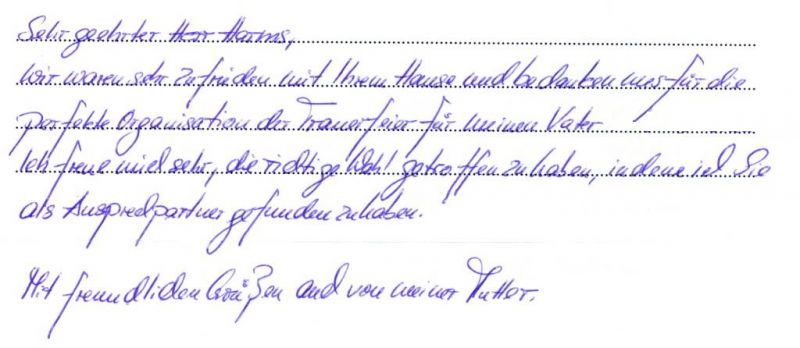 Sehr geehrter Herr Harms,
wir waren sehr zufrieden mit Ihrem Hause und bedanken uns für die
perfekte Organisation der Trauerfeier für meinen Vater
Ich freue mich sehr, die richtige Wahl getroffen zu haben, indem ich Sie
als Ansprechpartner gefunden zu haben.
Mit freundlichen Grüßen auch von meiner Mutter.